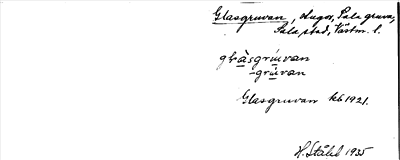 Glasgruvan, Hugos, Sala gruva,
Sala stad, Västm. l.
glàsgrúvan
-grúvan
Glasgruvan kb 1921.
H. Ståhl 1935